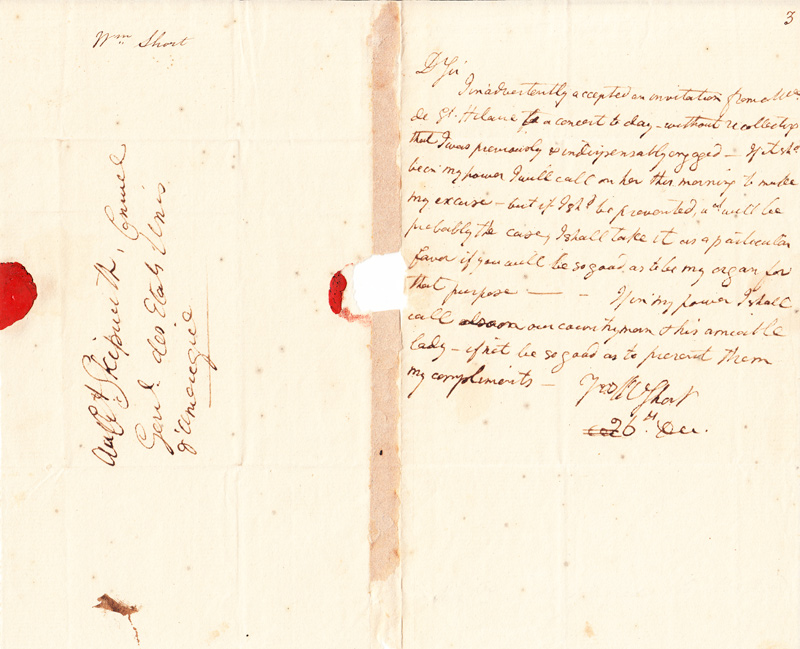 Wm Short
Skipwith, Consul
Genl. des Etats Unis
d'amerique
3
D Sir
I inadvertently accepted an invitation from
de St. Hilaire to a concert to day - without recollecting
that I was previously & indispensably engaged - If it shd.
be in my power I will call on her this morning to make
my excuse - but if I shd. be prevented, as will be
probably the case, I shall take it as a particular
favor if you will be so good as to be my organ for
that purpose — - If in my power I shall
call on our countryman & his amiable
lady - if not be so good as to present them
my compliments -
W Short
26th Dec.